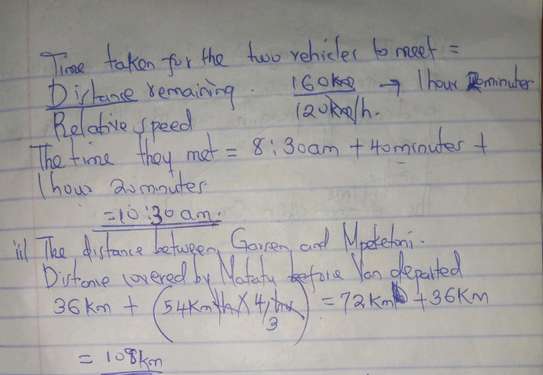 Time taken for the two vehicles to meet =
Distance remaining. 160km → 1 hour 20minutes
Relative speed 120km/h.
The time they met = 8:30am + 40minutes +
1hour 20minutes
= 10:30am.
ii) The distance between Garsen and Mpeketoni.
Distance covered by Matatu before Van departed
36Km + (54Km/h × 4/3 hrs) = 72Km + 36KM
= 108km